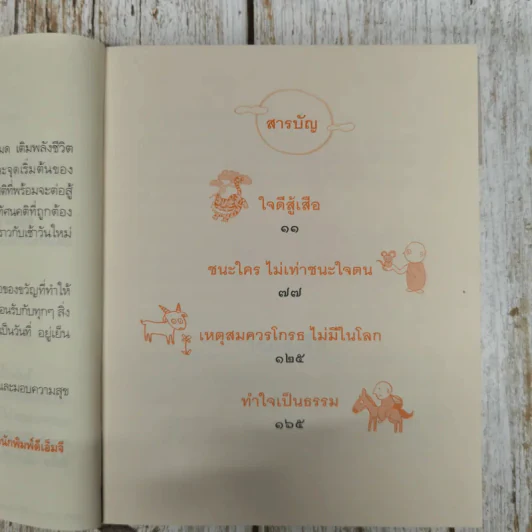 มด เติมพลังชีวิต
ะจุดเริ่มต้นของ
ติที่พร้อมจะต่อสู้
ทัศนคติที่ถูกต้อง
ราวกับเช้าวันใหม่
องของขวัญที่ทำให้
อนรับกับทุกๆ สิ่ง
เป็นวันที่ อยู่เย็น
และมอบความสุข
นักพิมพ์ดีเอ็มจี
สารบัญ
ใจดีสู้เสือ
๑๑
ชนะใคร ไม่เท่าชนะใจตน
๗๗
เหตุสมควรโกรธ ไม่มีในโลก
๑๒๕
ทำใจเป็นธรรม
๑๖๕